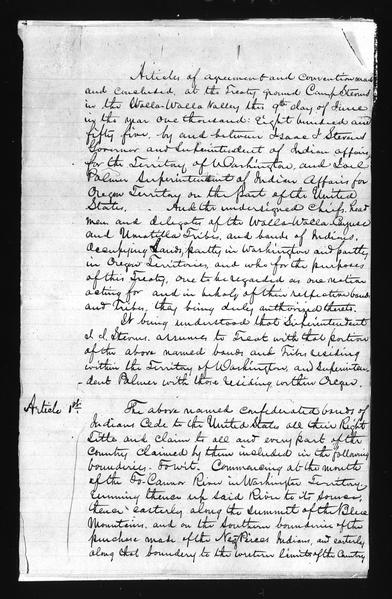 Articles of agreement and convention made
and concluded, at the Treaty ground Camp Stevens
in the Walla-Walla Valley this 9th day of June
in the year one thousand: eight hundred and
fifty five, by and between Isaac I Stevens
Governor and Superintendent of Indian affairs
for the Territory of Washington, and Joel
Palmer Superintendent of Indian Affairs for
Oregon Territory on the part of the United
States, And the undersigned Chiefs, head
men and delegates of the Walla-Walla Cayuse
and Umatilla Tribes, and bands of Indians,
Occupying Lands, partly in Washington and partly
in Oregon Territories, and who for the purposes
of this Treaty, are to be regarded as one nation
acting for and in behalf of their respective bands
and Tribes, they being duly authorized thereto.
It being understood that Superintendent
I. I. Stevens assumes to Treat with that portion
of the above named bands and Tribes residing
within the Territory of Washington, and Superinten-
dent Palmer with those residing within Oregon.
Article 1st. The above named confederated bands of
Indians Cede to the United States all their Right
Title and claim to all and every part of the
Country claimed by them included in the following
boundries. Towit. Commencing at the mouth
of the To-Cannon River in Washington Territory
running thence up said River to its source,
thence easterly along the summit of the Blue
Mountains, and on the southern boundaries of the
purchase made of the Nez Perces Indians, and easterly
along that boundary to the western limits of the Country